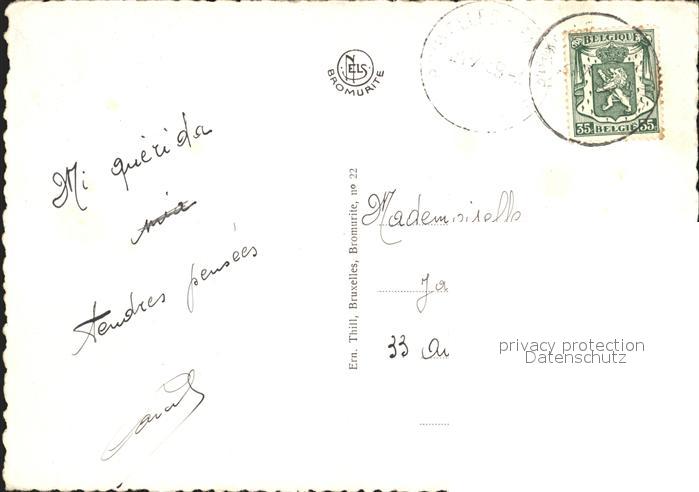 Mi quèrida
mia
tendres pensées
NELS
BROMURITE
Ern. Thill, Bruxelles, Bromurite, nº 22
BELGIQUE
35 BELGIË 35
Mademoiselle
Ja
33
privacy protection
Datenschutz